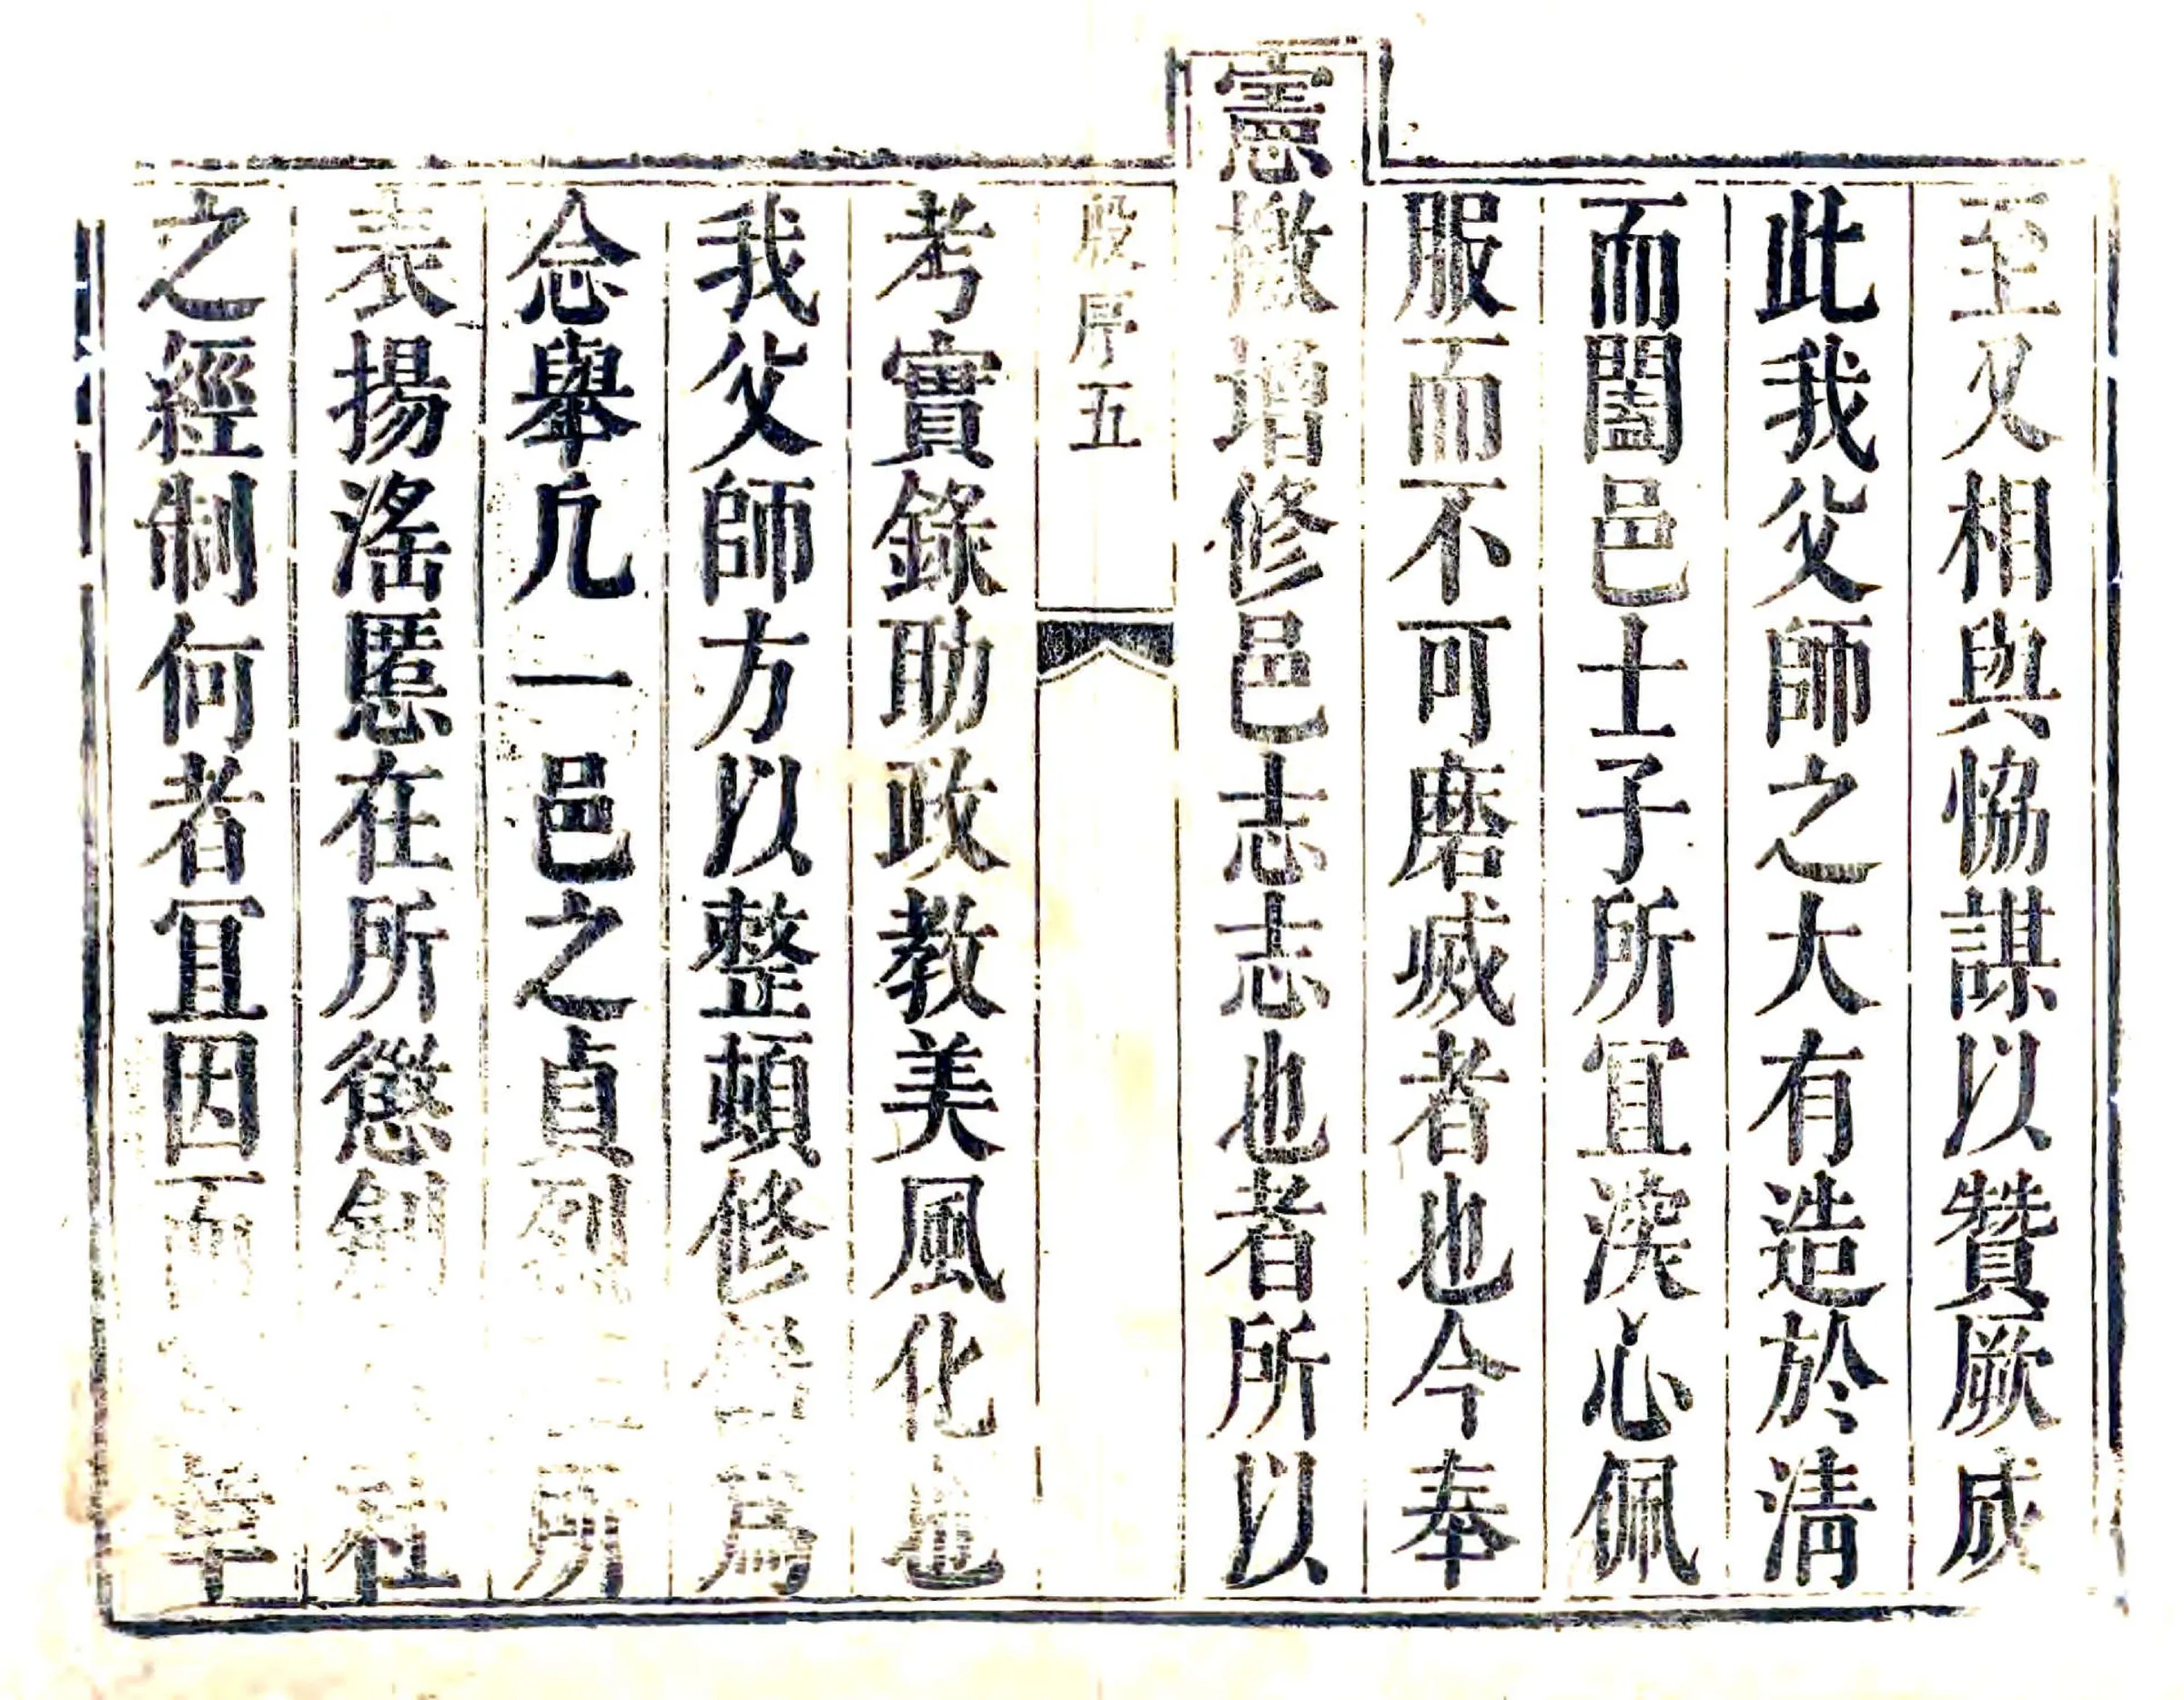 至又相與恊謀以贊厥成
此我父師之大有造於淸
而闔邑士子所冝深心佩
服而不可磨滅者也今奉
憲檄增修邑志志也者所以
殷序五
考實錄助政教美風化也
我父師方以整頓修 爲
念舉凡一邑之貞列 所
表揚滛慝在所懲創 社
之經制何者冝因 革